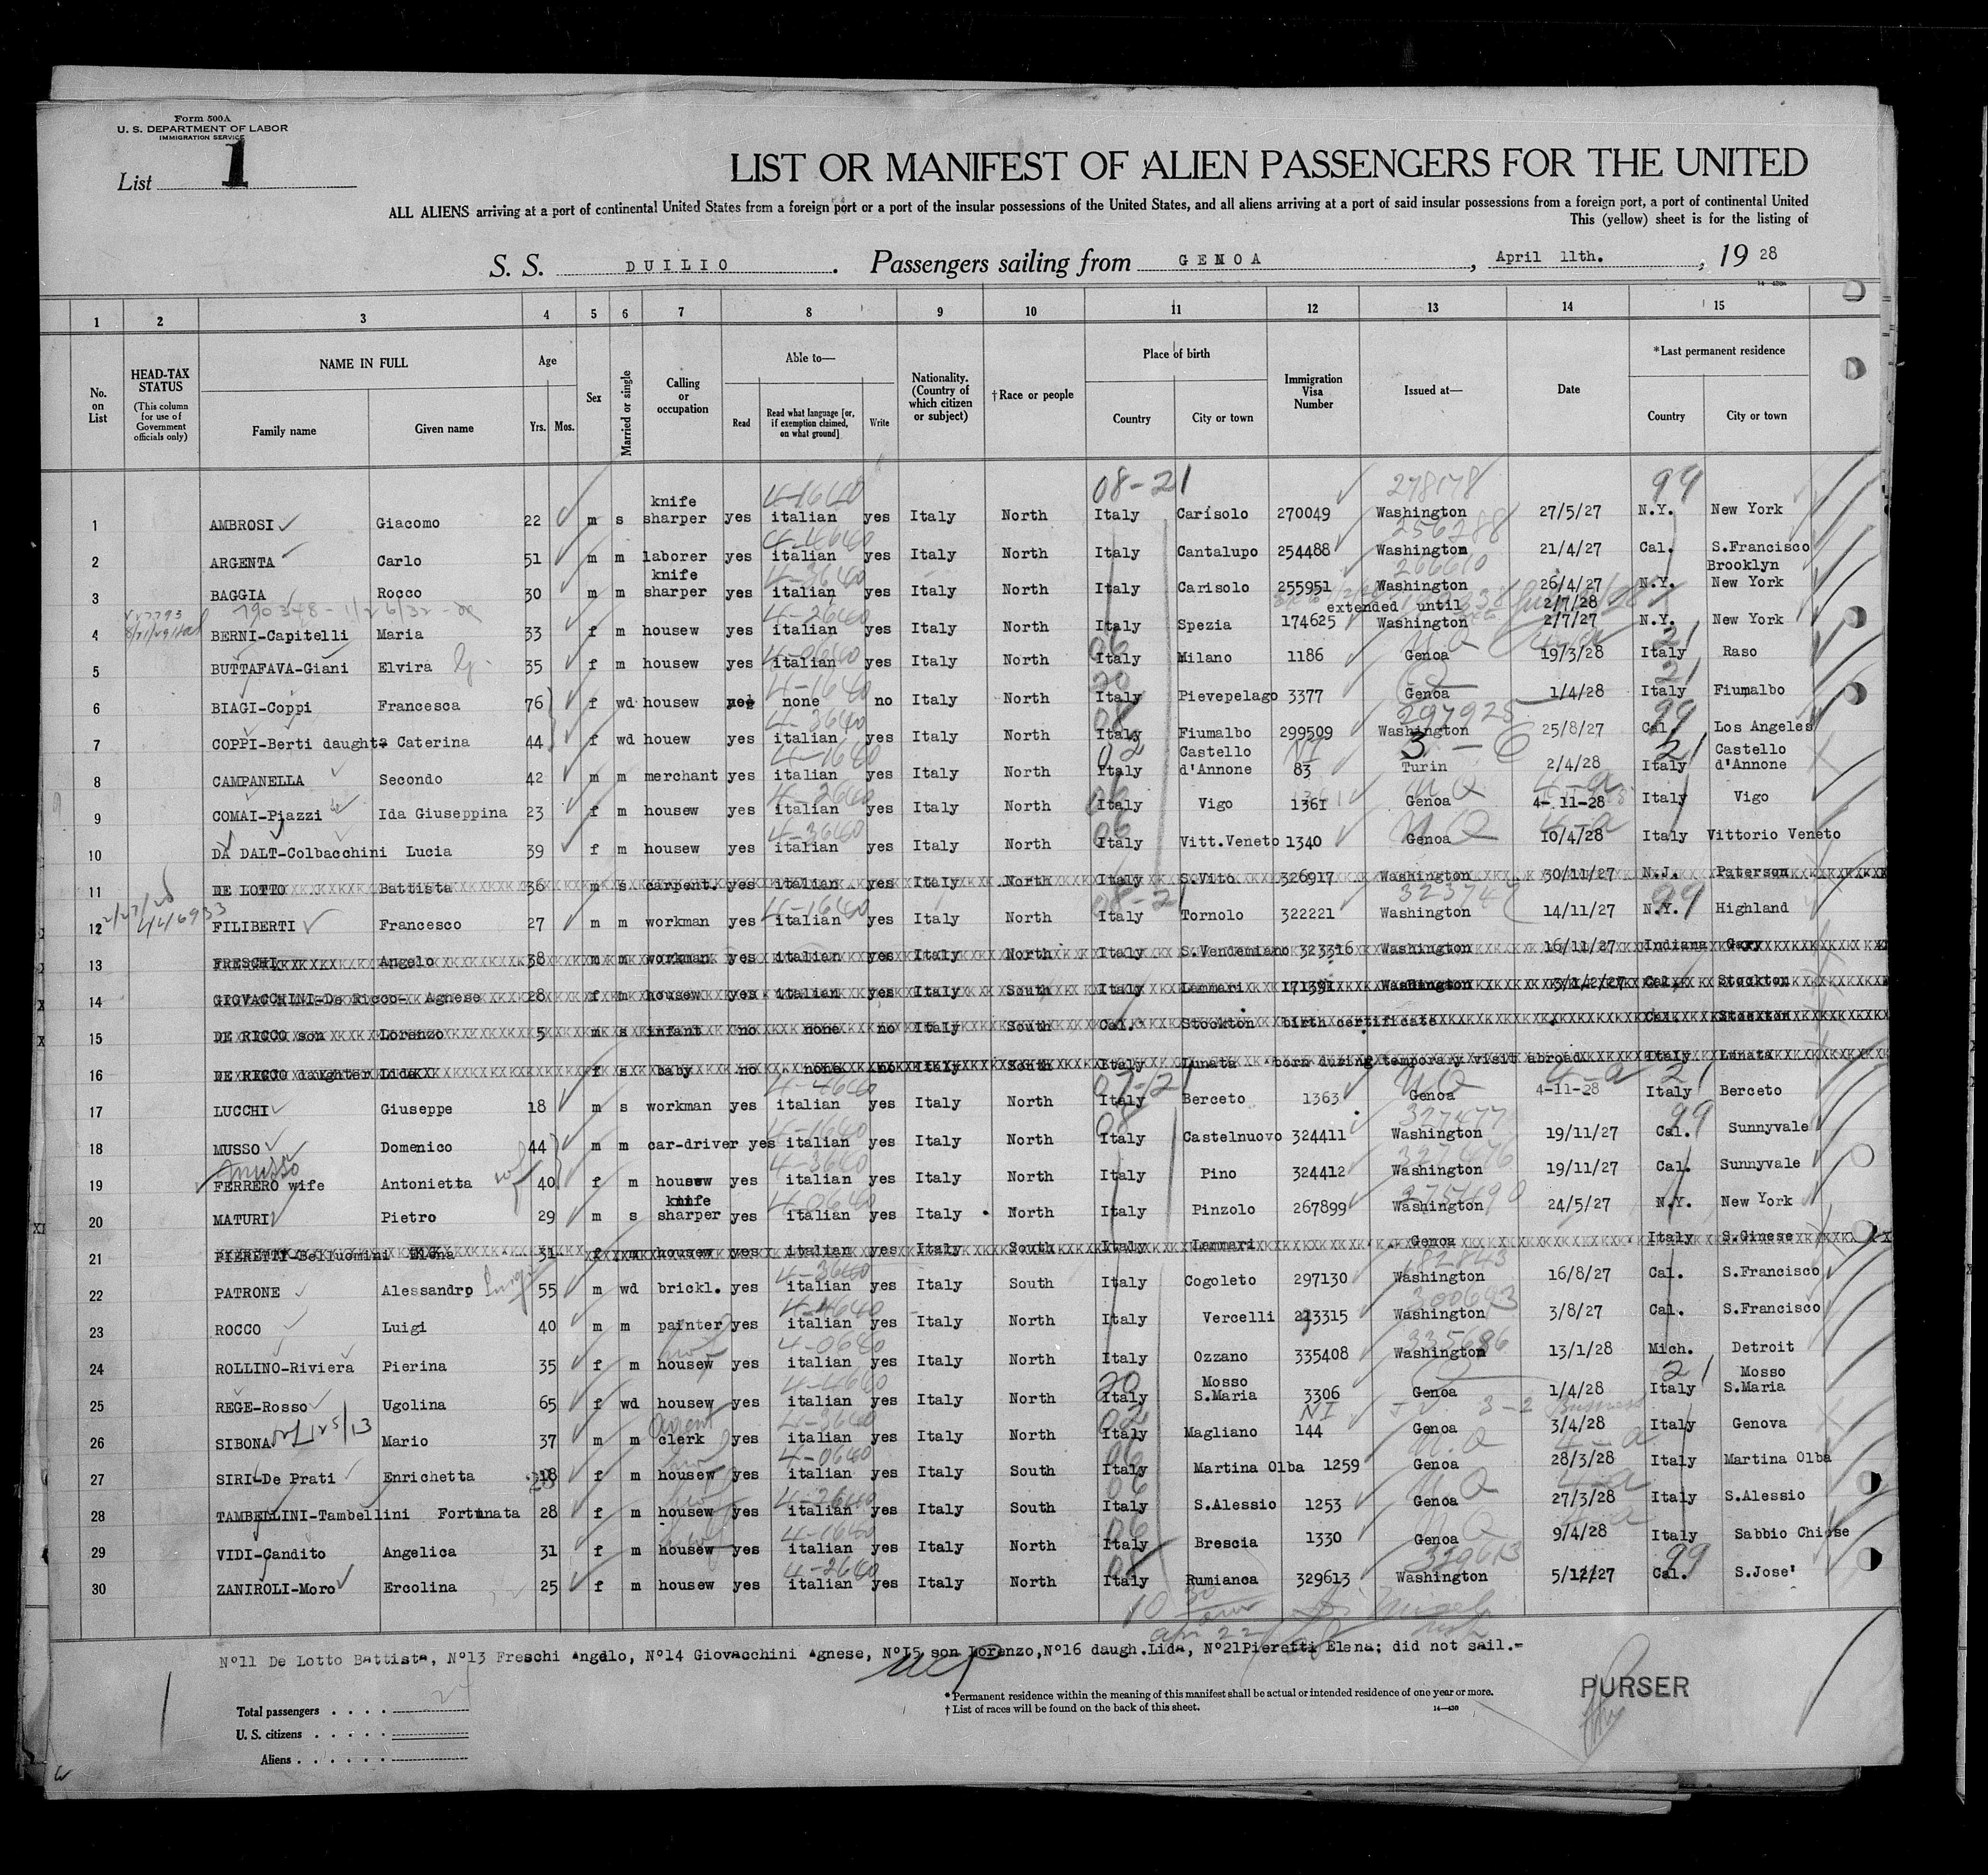 Form 500A
U. S. DEPARTMENT OF LABOR
IMMIGRATION SERVICE
List 1
LIST OR MANIFEST OF ALIEN PASSENGERS FOR THE UNITED
ALL ALIENS arriving at a port of continental United States from a foreign port or a port of the insular possessions of the United States, and all aliens arriving at a port of said insular possessions from a foreign port, a port of continental United
This (yellow) sheet is for the listing of
S. S. DUILIO. Passengers sailing from GENOA, April 11th., 1928
1 2 3 4 5 6 7 8 9 10 11 12 13 14 15
No. on List
HEAD-TAX STATUS (This column for use of Government officials only)
NAME IN FULL Family name Given name
Age Yrs. Mos.
Sex
Married or single
Calling or occupation
Able to— Read Read what language [or, if exemption claimed, on what ground] Write
Nationality. (Country of which citizen or subject)
†Race or people
Place of birth Country City or town
Immigration Visa Number
Issued at—
Date
*Last permanent residence Country City or town
1 AMBROSI Giacomo 22 m s knife sharper yes italian yes Italy North Italy Carisolo 270049 Washington 27/5/27 N.Y. New York
2 ARGENTA Carlo 51 m m laborer yes italian yes Italy North Italy Cantalupo 254488 Washington 21/4/27 Cal. S.Francisco
3 BAGGIA Rocco 30 m m knife sharper yes italian yes Italy North Italy Carisolo 255951 Washington 26/4/27 N.Y. Brooklyn New York
extended until 2/7/28
4 BERNI-Capitelli Maria 33 f m housew yes italian yes Italy North Italy Spezia 174625 Washington 2/7/27 N.Y. New York
5 BUTTAFAVA-Giani Elvira 35 f m housew yes italian yes Italy North Italy Milano 1186 Genoa 19/3/28 Italy Raso
6 BIAGI-Coppi Francesca 76 f wd housew none no Italy North Italy Pievepelago 3377 Genoa 1/4/28 Italy Fiumalbo
7 COPPI-Berti daught. Caterina 44 f wd houew yes italian yes Italy North Italy Fiumalbo 299509 Washington 25/8/27 Cal. Los Angeles
8 CAMPANELLA Secondo 42 m m merchant yes italian yes Italy North Italy Castello d'Annone 83 Turin 2/4/28 Italy Castello d'Annone
9 COMAI-Piazzi Ida Giuseppina 23 f m housew yes italian yes Italy North Italy Vigo 1361 Genoa 4-11-28 Italy Vigo
10 DA DALT-Colbacchini Lucia 39 f m housew yes italian yes Italy North Italy Vitt.Veneto 1340 Genoa 10/4/28 Italy Vittorio Veneto
11 DE LOTTO Battista 36 m s carpent. yes italian yes Italy North Italy S.Vito 326917 Washington 30/11/27 N.J. Paterson
12 FILIBERTI Francesco 27 m m workman yes italian yes Italy North Italy Tornolo 322221 Washington 14/11/27 N.Y. Highland
13 FRESCHI Angelo 38 m m workman yes italian yes Italy North Italy S.Vendemiano 323316 Washington 16/11/27 Indiana Gary
14 GIOVACCHINI-De Ricco- Agnese 28 f m housew yes italian yes Italy South Italy Lammari 171391 Washington Cal. Stockton
15 DE RICCO son Lorenzo 5 m s infant no none no Italy South Cal. Stockton birth certificate Cal. Stockton
16 DE RICCO daughter Lida f s baby no none no Italy South Italy Lunata born during temporary visit abroad Italy Lunata
17 LUCCHI Giuseppe 18 m s workman yes italian yes Italy North Italy Berceto 1363 Genoa 4-11-28 Italy Berceto
18 MUSSO Domenico 44 m m car-driver yes italian yes Italy North Italy Castelnuovo 324411 Washington 19/11/27 Cal. Sunnyvale
Musso
19 FERRERO wife Antonietta 40 f m housew yes italian yes Italy North Italy Pino 324412 Washington 19/11/27 Cal. Sunnyvale
20 MATURI Pietro 29 m s knife sharper yes italian yes Italy North Italy Pinzolo 267899 Washington 24/5/27 N.Y. New York
21 PIERETTI-Belluomini Elena 31 f m housew yes italian yes Italy South Italy Lammari Genoa Italy S.Ginese
22 PATRONE Alessandro 55 m wd brickl. yes italian yes Italy South Italy Cogoleto 297130 Washington 16/8/27 Cal. S.Francisco
23 ROCCO Luigi 40 m m painter yes italian yes Italy North Italy Vercelli 223315 Washington 3/8/27 Cal. S.Francisco
24 ROLLINO-Riviera Pierina 35 f m housew yes italian yes Italy North Italy Ozzano 335408 Washington 13/1/28 Mich. Detroit
25 REGE-Rosso Ugolina 65 f wd housew yes italian yes Italy North Italy Mosso S.Maria 3306 Genoa 1/4/28 Italy Mosso S.Maria
26 SIBONA Mario 37 m m clerk yes italian yes Italy North Italy Magliano 144 Genoa 3/4/28 Italy Genova
27 SIRI-De Prati Enrichetta 18 f m housew yes italian yes Italy South Italy Martina Olba 1259 Genoa 28/3/28 Italy Martina Olba
28 TAMBELLINI-Tambellini Fortunata 28 f m housew yes italian yes Italy South Italy S.Alessio 1253 Genoa 27/3/28 Italy S.Alessio
29 VIDI-Candito Angelica 31 f m housew yes italian yes Italy North Italy Brescia 1330 Genoa 9/4/28 Italy Sabbio Chiese
30 ZANIROLI-Moro Ercolina 25 f m housew yes italian yes Italy North Italy Rumianca 329613 Washington 5/12/27 Cal. S.Jose'
N°11 De Lotto Battista, N°13 Freschi Angelo, N°14 Giovacchini Agnese, N°15 son Lorenzo, N°16 daugh.Lida, N°21Pieretti Elena; did not sail.-
PURSER
* Permanent residence within the meaning of this manifest shall be actual or intended residence of one year or more.
† List of races will be found on the back of this sheet.
14—430
Total passengers . . . .
U. S. citizens . . . . .
Aliens . . . . . .